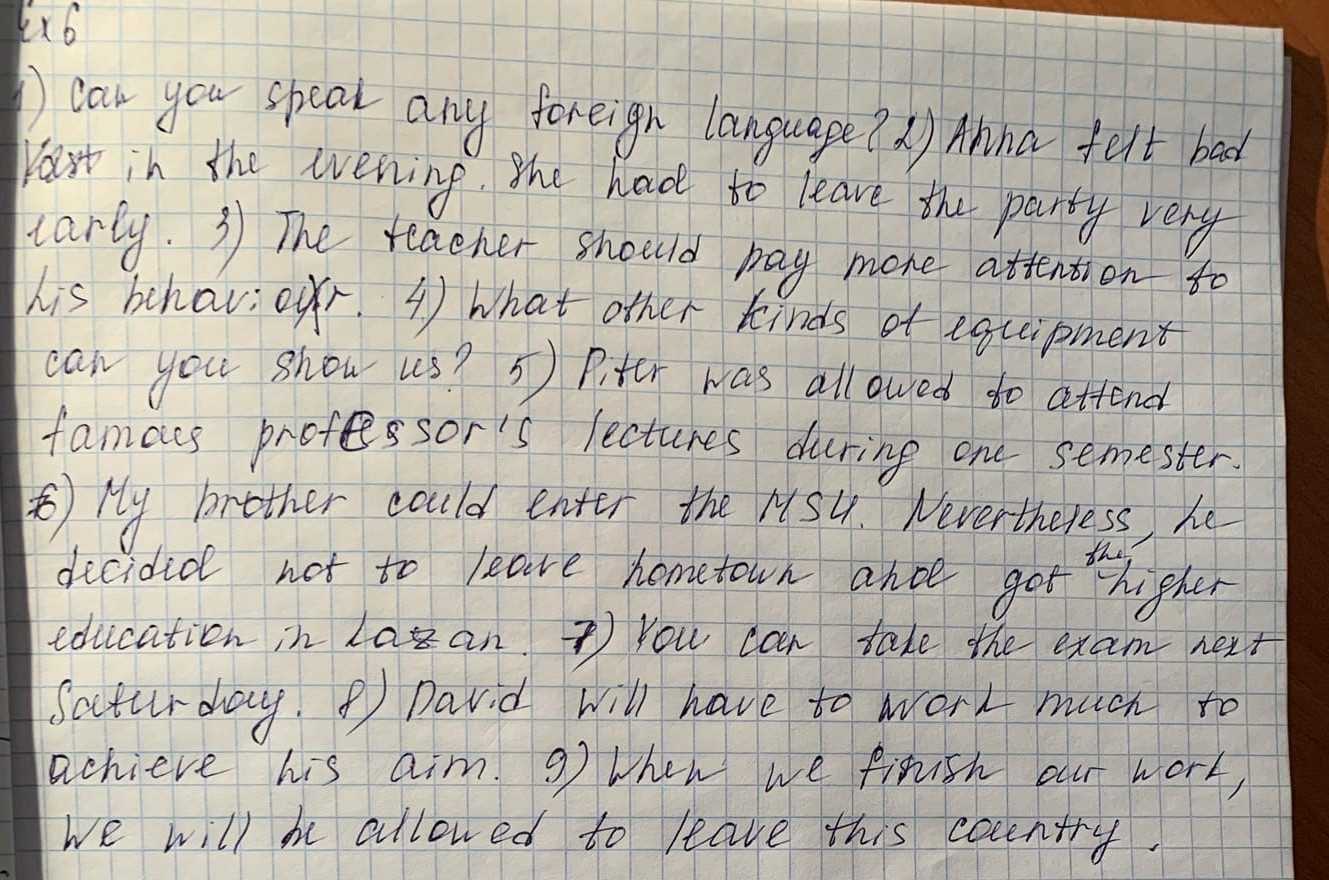 Ex 6
1) Can you speak any foreign language? 2) Anna felt bad
in the evening. She had to leave the party very
early. 3) The teacher should pay more attention to
his behaviour. 4) What other kinds of equipment
can you show us? 5) Piter was allowed to attend
famous professor's lectures during one semester.
6) My brother could enter the MSU. Nevertheless, he
decided not to leave hometown and got the higher
education in Kazan. 7) You can take the exam next
Saturday. 8) David will have to work much to
achieve his aim. 9) When we finish our work,
we will be allowed to leave this country.